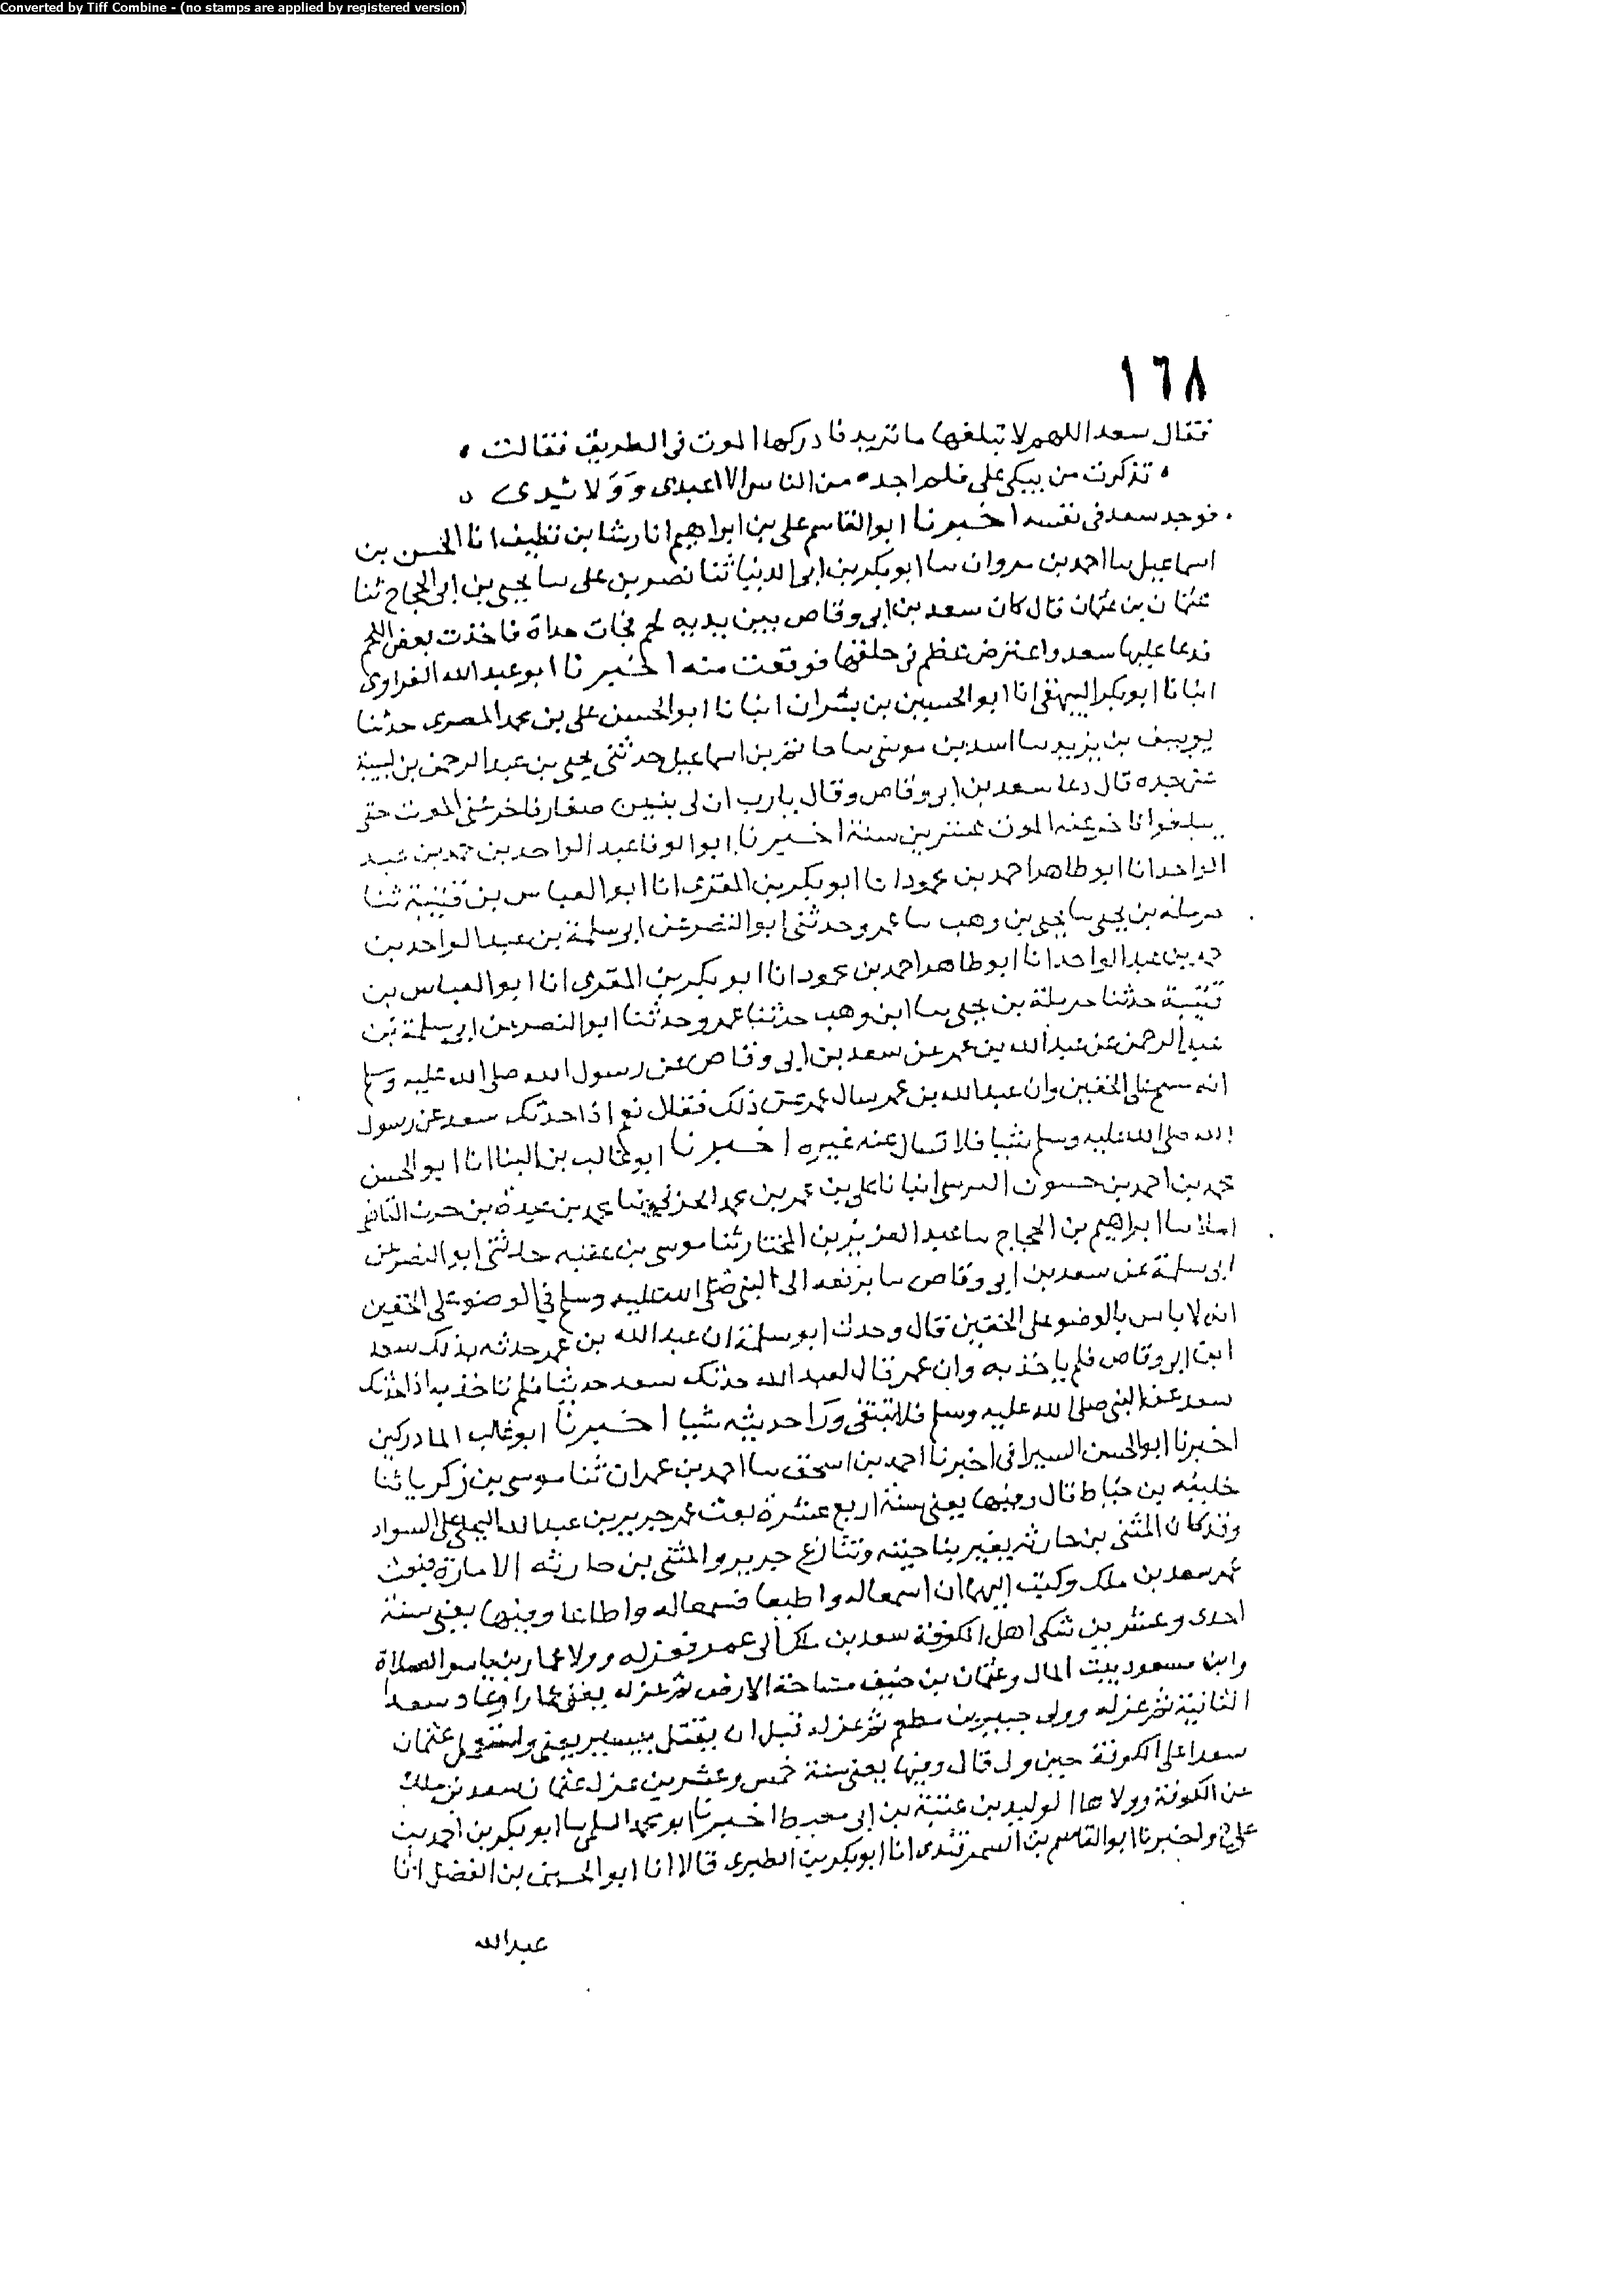 Converted by Tiff Combine - (no stamps are applied by registered version)
١٦٨
فقال سعد اللهم لا تبلغها ما تريد فادركها الموت في الطريق فقالت
تذكرت من يبكي على فلم اجد من الناس الا اعبدى وولائدى
فوجد سعد في نفسه اخبرنا ابو القاسم على بن ابراهيم انا رشا بن نظيف انا الحسن بن
اسماعيل سا احمد بن مروان سا ابو بكر بن ابى الدنيا ثنا نصر بن على سا يحيى بن ابى الحجاج ثنا
عثمان بن عثمان قال كان سعد بن ابى وقاص بين يديه لحم فجات حداة فاخذت بعض اللحم
فدعا عليها سعد واعترض عظم في حلقها فوقعت ميته اخبرنا ابو عبد الله الفراوى
انبانا ابو بكر البيهقى انا ابو الحسين بن بشران انبانا ابو الحسن على بن محمد المصرى حدثنا
يوسف بن يزيد سا اسد بن موسى سا حاتم بن اسماعيل حدثنى يحيى بن عبد الرحمن بن لبيبة
عن جده قال دعا سعد بن ابى وقاص وقال يا رب ان لى بنين صغار فاخر عنى الموت حتى
يبلغوا فاخر عنه الموت عشرين سنة اخبرنا ابو الوفا عبد الواحد بن حمد بن عبد
الواحد انا ابو طاهر احمد بن محمود انا ابو بكر بن المقرى انا ابو العباس بن قتيبة ثنا
حرملة بن يحيى سا يحيى بن وهب سا عمرو حدثنى ابو النضر عن ابى سلمة بن عبد الواحد بن
حمد بن عبد الواحد انا ابو طاهر احمد بن محمود انا ابو بكر بن المقرى انا ابو العباس بن
قتيبة حدثنا حرملة بن يحيى سا ابن وهب حدثنا عمرو حدثنا ابو النضر عن ابى سلمة بن
عبد الرحمن عن عبد الله بن عمر عن سعد بن ابى وقاص عن رسول الله صلى الله عليه وسلم
انه مسح على الخفين وان عبد الله بن عمر سال عمر عن ذلك فقال نعم اذا حدثك سعد عن رسول
الله صلى الله عليه وسلم شيا فلا تسال عنه غيره اخبرنا ابو غالب بن البنا انا ابو الحسن
محمد بن احمد بن حسنون النرسى انبانا على بن عمر بن محمد الحربى سا محمد بن عبدة بن حرب القاضى
املا سا ابراهيم بن الحجاج سا عبد العزيز بن المختار ثنا موسى بن عقبه حدثنى ابو النضر عن
ابى سلمة عن سعد بن ابى وقاص سا يرفعه الى النبى صلى الله عليه وسلم في الوضو على الخفين
انه لا باس بالوضو على الخفين قال وحدث ابو سلمة ان عبد الله بن عمر حدثه بذلك سعد
ابن ابى وقاص فلم ياخذ به وان عمر قال لعبد الله حدثك سعد حديثا فلم تاخذ به اذا حدثك
سعد عن النبى صلى الله عليه وسلم فلا تبتغى ورا حديثه شيا اخبرنا ابو غالب الماوردى
اخبرنا ابو الحسن السيرافى اخبرنا احمد بن اسحق سا احمد بن عمران ثنا موسى بن زكريا ثنا
خليفه بن خياط قال وفيها يعنى سنة اربع عشرة بعث عمر جرير بن عبد الله البجلى على السواد
وقد كان المثنى بن حارثه يغير بناحيته وتنازع جرير والمثنى بن حارثه الامارة فبعث
عمر سعد بن ملك وكتب اليهما ان اسمعا له واطيعا فسمعا له واطاعا وفيها يعنى سنة
احدى وعشرين شكى اهل الكوفة سعد بن ملك الى عمر فعزله وولا عمار بن ياسر الصلاة
وابن مسعود بيت المال وعثمان بن حنيف مساحة الارض ثم عزله يعنى عمارا وعاد سعدا
الثانية ثم عزله وولى جبير بن مطعم ثم عزله قبل ان يقتل بيسير يعنى واستعمل عثمان
سعدا على الكوفة حين ولى قال وفيها يعنى سنة خمس وعشرين عزل عثمان سعد بن ملك
عن الكوفة وولاها الوليد بن عقبة بن ابى معيط اخبرنا ابو محمد السلمى سا ابو بكر بن احمد بن
على واخبرنا ابو القاسم بن السمرقندى انا ابو بكر بن الطبرى قالا انا ابو الحسين بن الفضل انا
عبد الله